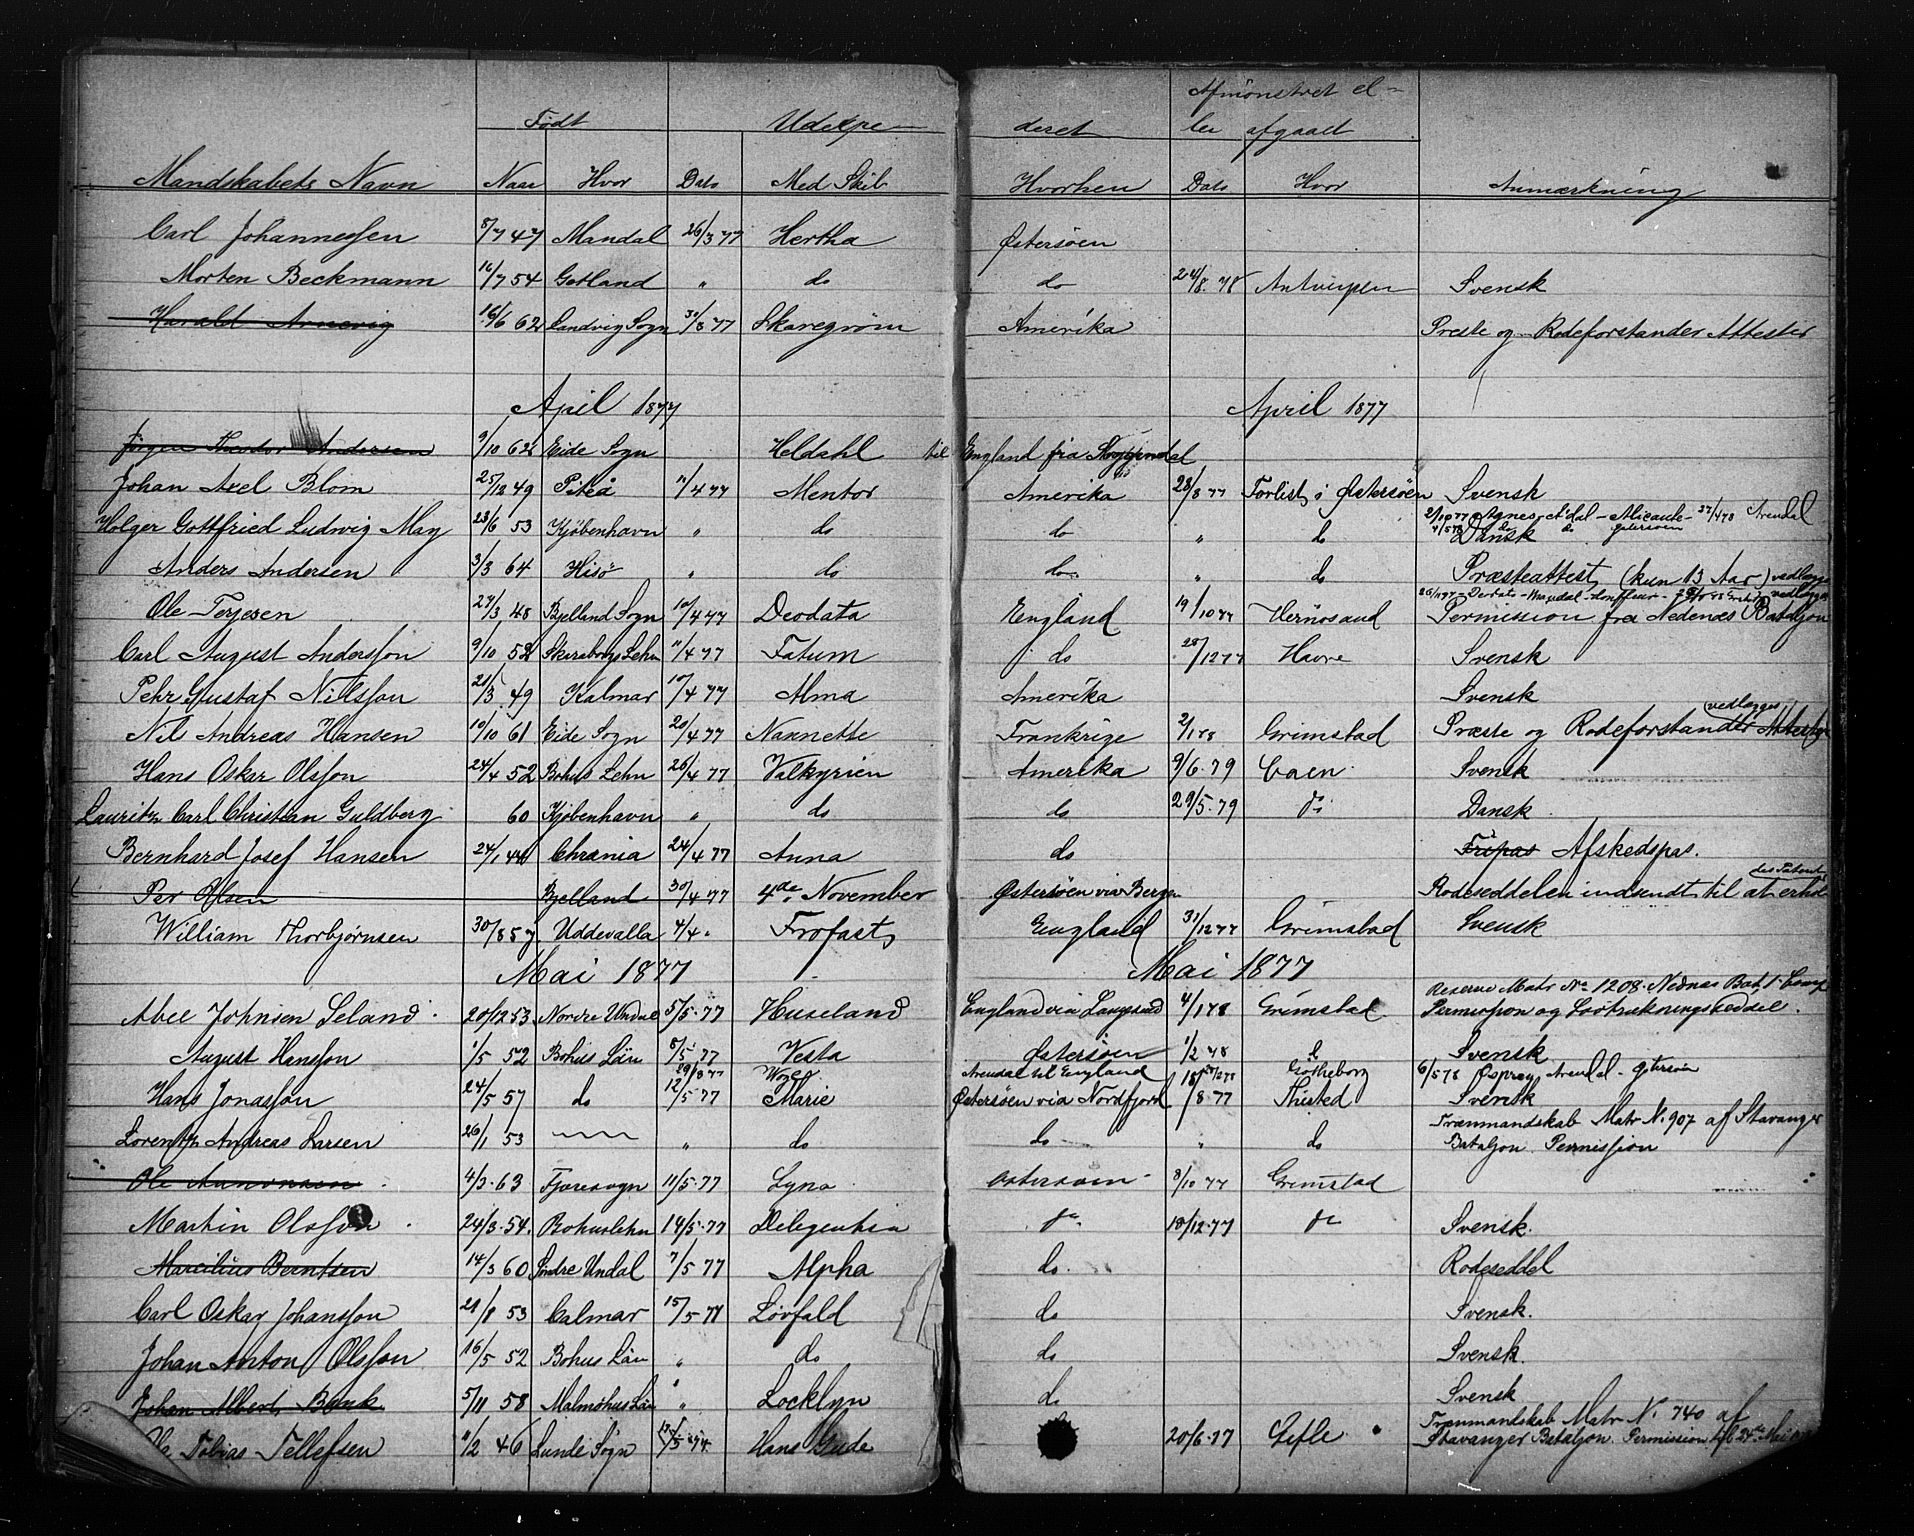 Afmønstret el-
Født Udexpe- deret ler afgaaet
Mandskabets Navn Naar Hvor Dato Med Skib Hvorhen Dato Hvor Anmærkning
Carl Johannessen 8/7 47 Mandal 26/3 77 Hertha Østersøen
Morten Beckmann 16/7 54 Gotland " do do 24/8. 78 Antverpen Svensk
Harald Arnevig 16/6 62 Landvig Sogn 30/3 77 Skaregrøm Amerika Preste og Rodeforstander Attester
April 1877 April 1877
Jørgen Theodor Andersen 9/10 62 Eide Sogn Heldahl til England fra
Johan Axel Blom 25/12 49 Piteå 11/4 77 Mentor Amerika 28/8 77 Forlist i Østersøen Svensk
2/10 77 Agnes - A'dal - Alicante - 27/4 78 Arendal
Holger Gottfried Ludwig May 23/6 53 Kjøbenhavn " do do " do Dansk
Anders Andersen 3/3 64 Hisö " do do " do Præsteattest (kun 13 Aar) vedlægges
Ole Terjesen 27/3 48 Bjelland Sogn 10/4 77 Deodata England 19/10 77 Hernösand Permission fra Nedenæs Bataljon
Carl August Andersson 9/10 52 Skaraborgs Lehn 11/4 77 Fatum do 28/12 77 Havre Svensk
Pehr Gustaf Nilsson 21/3 49 Kalmar 10/4 77 Alma Amerika Svensk
(vedlægges)
Nils Andreas Hansen 10/10 61 Eide Sogn 20/4 77 Nannette Frankrige 2/1 78 Grimstad Præste og Rodeforstander Attester
Hans Oskar Olsson 24/4 52 Bohus Lehn 26/4 77 Valkyrien Amerika 9/6. 79 Caen Svensk
Lauritz Carl Christian Guldberg 60 Kjøbenhavn " do do 29/5. 79 do Dansk
Bernhard Josef Hansen 24/1 44 Chrania 24/4 77 Anna do Fripas Afskedspas.
Per Olsen Bjelland 30/4 77 4de November Østersøen via Bergen Rodeseddelen indsendt til at erholde
William Thorbjørnsen 30/8 57 Uddevalla 4/4 " Trofast England 31/12 77 Grimstad Svensk
Mai 1877 Mai 1877
Reserve Matr No 1208. Nednæs Bat. 1 Comp
Abel Johnsen Seland 20/12 53 Nordre Undal 5/5. 77 Huseland England via Langesund 4/1 78 Grimstad Permission og Lodtrækningsseddel.
August Hansson 1/5 52 Bohus Län 8/5 77 Vesta Østersøen 1/2 78 do Svensk
29/8 77 Arendal til England Gøtheborg 6/5 78 Osprey Arendal - Østersøen
Hans Jonasson 24/5 57 do 12/5 77 Marie Østersøen via Nordfjord 18/8 77 Thisted Svensk
Trænmandskab Matr N. 907 af Stavanger
Lorentz Andreas Larsen 26/1 53 " do do " do Bataljon Permission
Ole 4/3. 63 Fjæresogn 11/5. 77 Lyna Østersøen 8/10 77 Grimstad
Martin Olsson 24/3. 54. Bohuslehn 14/5. 77 Deligentia do 18/12. 77 do Svensk.
Marcilius Berntsen 14/3 60 Søndre Undal 7/5 77 Alpha do. Rodeseddel
Carl Oskar Johansson 21/8 53 Calmar 15/5 77 Løvfald do Svensk.
Johan Anton Olsson 16/5 52 Bohus Län " do do Svensk.
Johan Albert Bunk 5/11 58 Malmøhus Län " Locklyn do Svensk
Trænmandskab Matr N. 740 af
Tobias Tellefsen 11/2 46 Lunde Sogn Hans Gude 20/6. 77 Gefle Stavanger Bataljon. Permission til 24de Mai